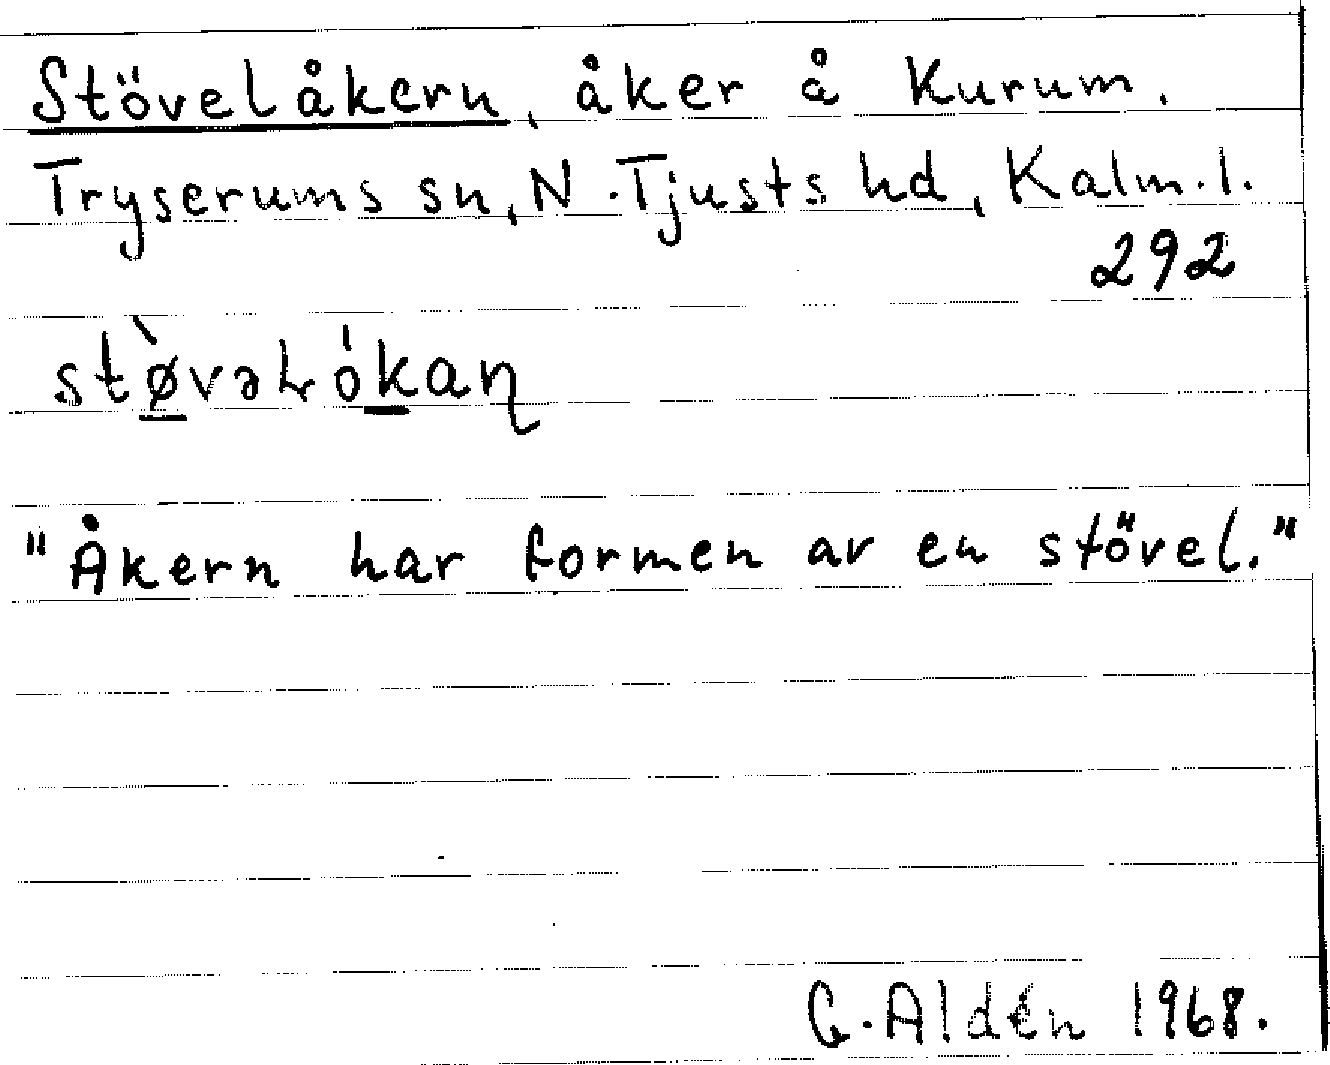 Stövelåkern, åker å Kurum.
Tryserums sn, N. Tjusts hd, Kalm. l.
292
stø̀vəLókaɳ
"Åkern har formen av en stövel."
G. Aldén 1968.